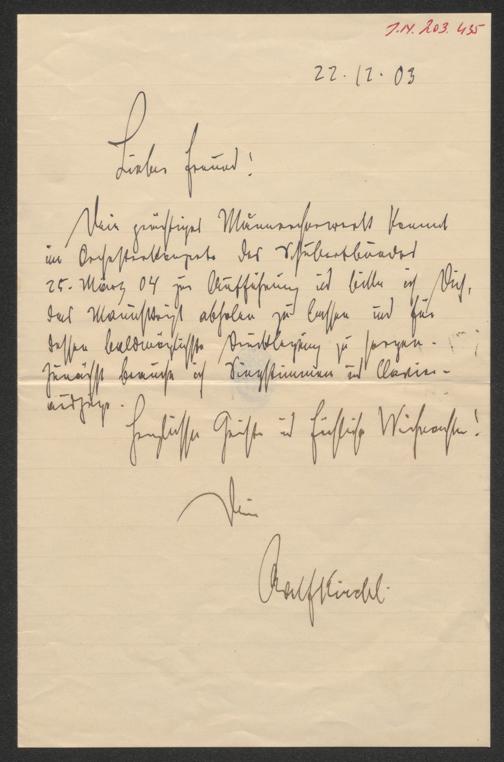 J.N. 203.435
22.12.03
Lieber Freund!
Dein prächtiges Männerchorwerk kommt
im Orchesterkonzerte des Schubertbundes
25. März 04 zur Aufführung und bitte ich Dich,
das Manuskript abholen zu lassen und für
dessen baldmöglichste Drucklegung zu sorgen.
Zunächst brauche ich Singstimmen und Clavier-
auszüge.
Herzlichste Grüße und fröhliche Weihnachten!
Dein
Adolf Kirchl.